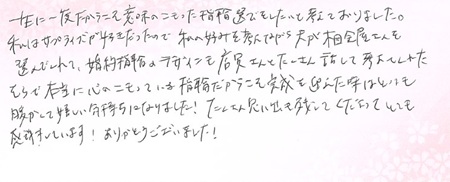 一生に一度だからこそ意味のこもった指輪選びをしたいと考えておりました。
私はサプライズが好きだったので 私の好みを考えながら夫が相合屋さんを
選んでくれて、婚約指輪のデザインを店員さんとたくさん話して考えてくれた
そうで 本当に心のこもっている指輪だからこそ完成を迎えた時はとても
暖かくて嬉しい気持ちになりました！たくさん思い出を残してくださってとても
感謝しています！ありがとうございました！